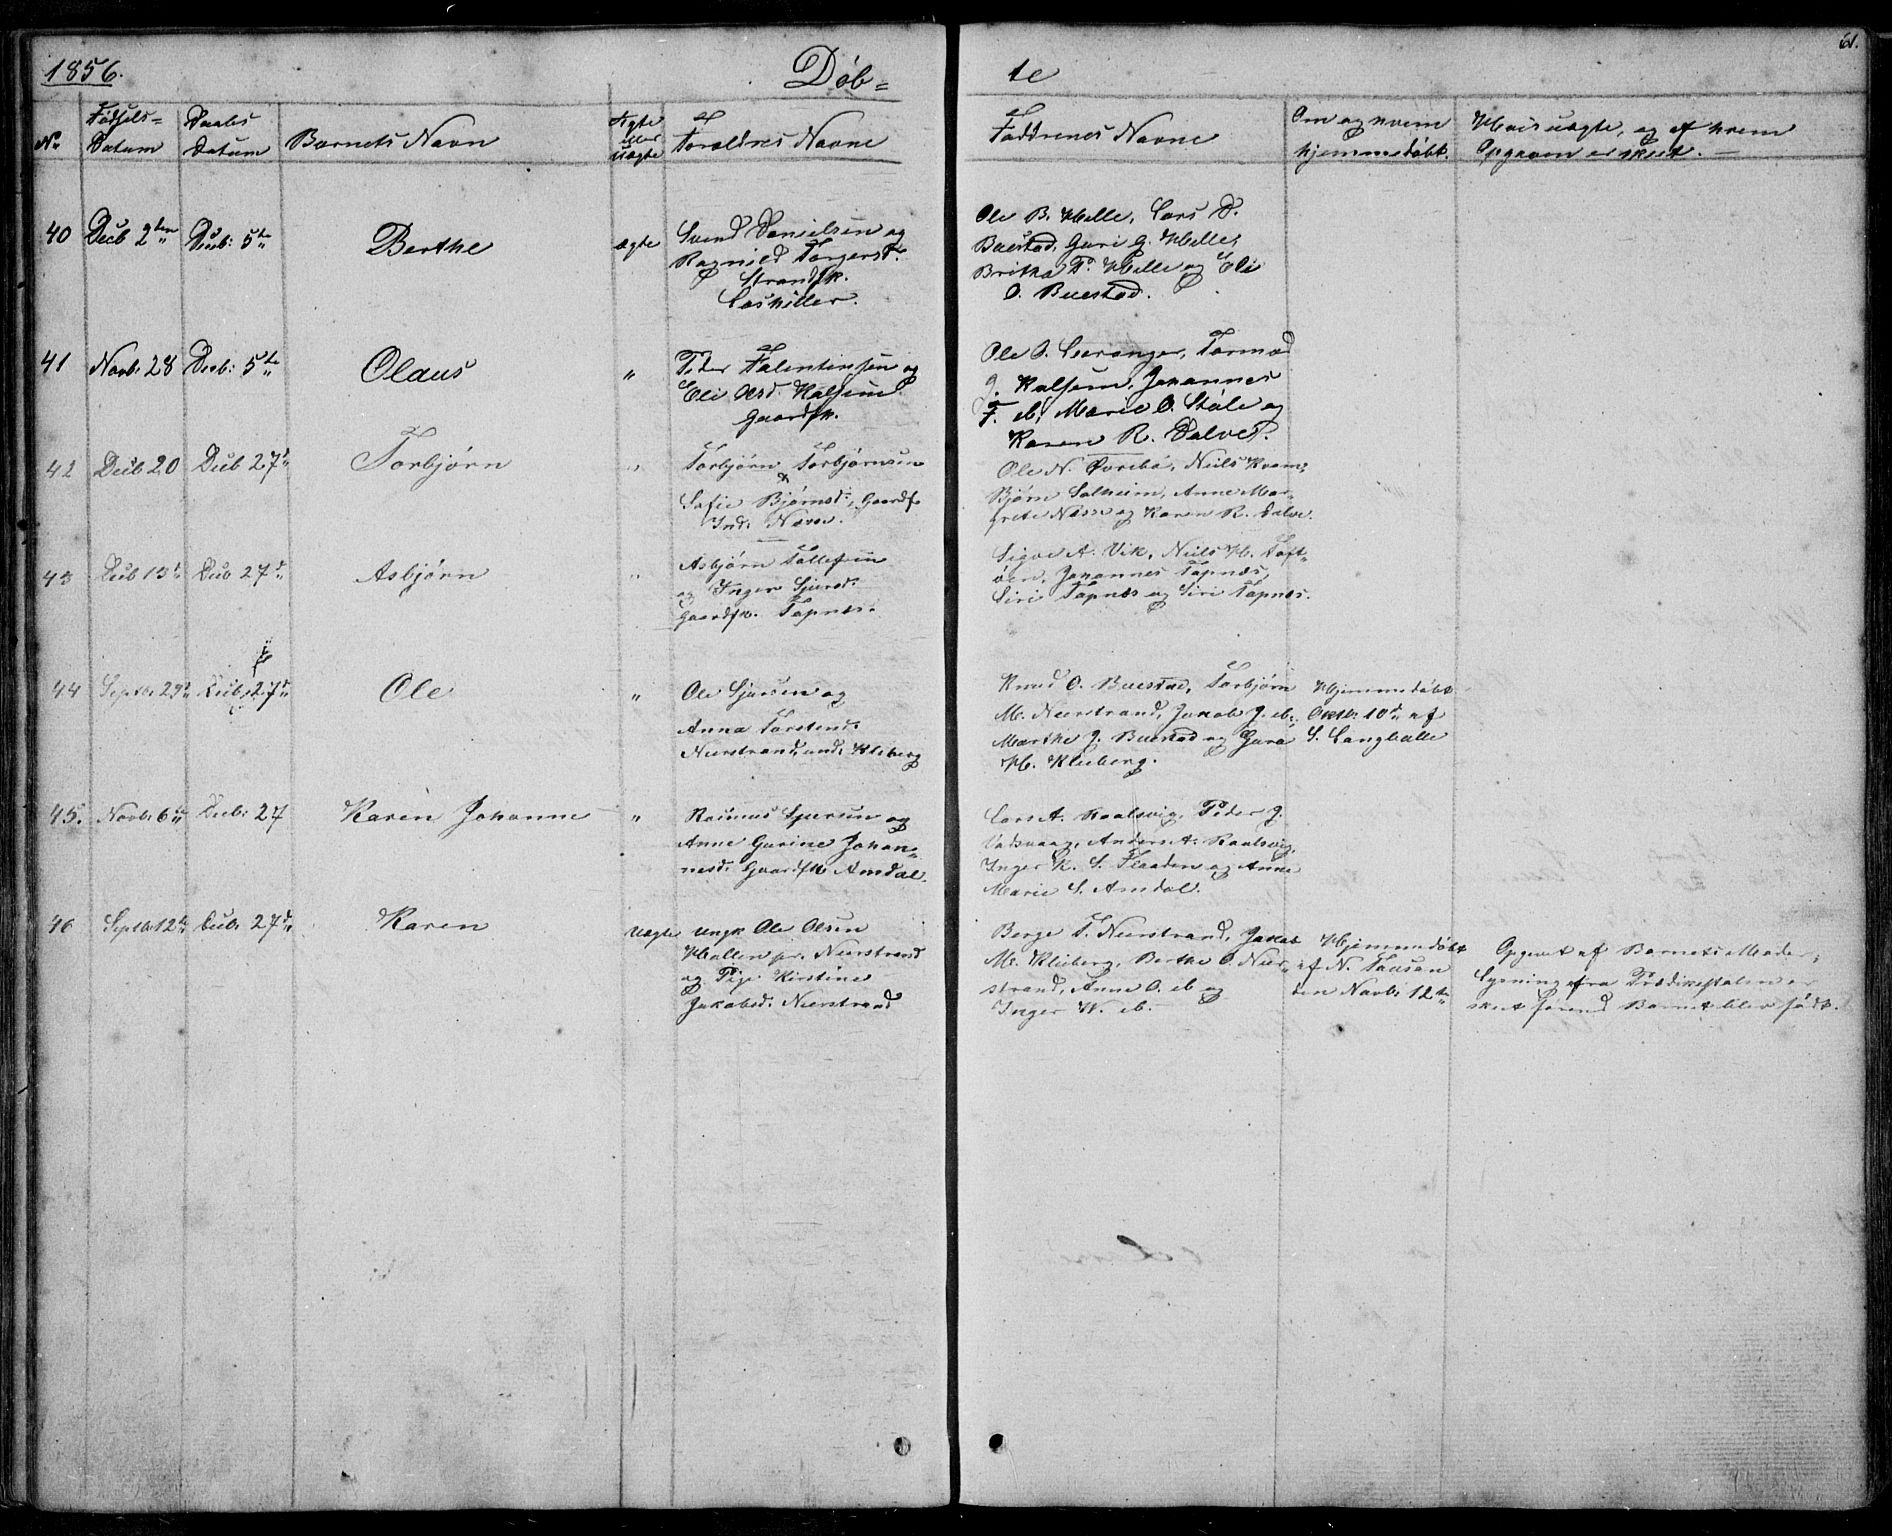 1856.
Døb=
te
61.
No
Fødsels=
Datum
Daabs
Datum
Barnets Navn
Ægte
eller
Uægte
Forældrenes Navne
Faddrenes Navne
Om og hvem
hjemmedøbt.
Hvis uægte, og af hvem
Opgaven er skeet. —
40
Decb 2den
Decb: 5te
Berthe
ægte
Svend Danielsen og
Ragnild Torgersd.
Strands.
Ole B. Helle, Lars D.
Buestad, Guri G. Helle,
Britha T. Helle og Eli
O. Buestad.
41
Novb: 28
Decb: 5te
Olaus
"
Peder Falentinsen og
Eli Olsd. Halsene
Gaardfk.
Ole O. Leeranger, Tormod
J. Halsene, Johannes
F. ib, Marie O. Støle og
Karen R. Dalve.
42
Decb 20
Decb 27d
Torbjørn
"
Torbjørn Torbjørnsen
&
Sofie Bjørnsd:, Gaardf.
Ind: Næsse.
Ole N. Torebø, Niels Kvam,
Bjørn Solheim, Anne Mar-
grete Næsse og Karen R. Dalve.
43
Decb 13d
Decb 27d
Asbjørn
"
Asbjørn Tollefsen
og Inger Sjursd:
Gaardfk. Tøpnes.
Sigve A. Vik, Niels H. Toft-
øen, Johannes Tøpnes,
Siri Tøpnes og Siri Tøpnes.
44
Septb: 29d
Decb: 27d
Ole
"
Ole Sjursen og
Anna Torstensd:
Neerstrand, und: Kleberg
Knud O. Buestad, Torbjørn
M. Neerstrand, Jakob J. ib:,
Marthe J. Buestad og Guro
H. Kleiberg.
Hjemmedøbt
Oktb: 10d af
S. Langballe
45.
Novb: 6te
Decb: 27
Karen Johanne
"
Rasmus Sjursen og
Anne Gurine Johan-
nesd: Gaardfk Amdal.
Lars A. Raalsvig, Peder J.
Vadsvaag, Anders A. Raalsvig,
Inger K. S. Flaaden og Anne
Marie S. Amdal.
46
Septb: 12te
Decb: 27d
Karen
Uægte
Ungk Ole Olsen
Hallen pr. Neerstrand
og Pige Kirstine
Jakobsd: Neerstrand
Berge T. Neerstrand, Jakob
M. Kleiberg, Berthe O. Neer-
strand, Anne O. ib og
Inger W. ib. —
Hjemmedøbt
af N. Tausan
den Novb: 12te
Opgivet af Barnets Moder;
Lysning fra Prædikestolen er
skeet førend Barnet blev født.